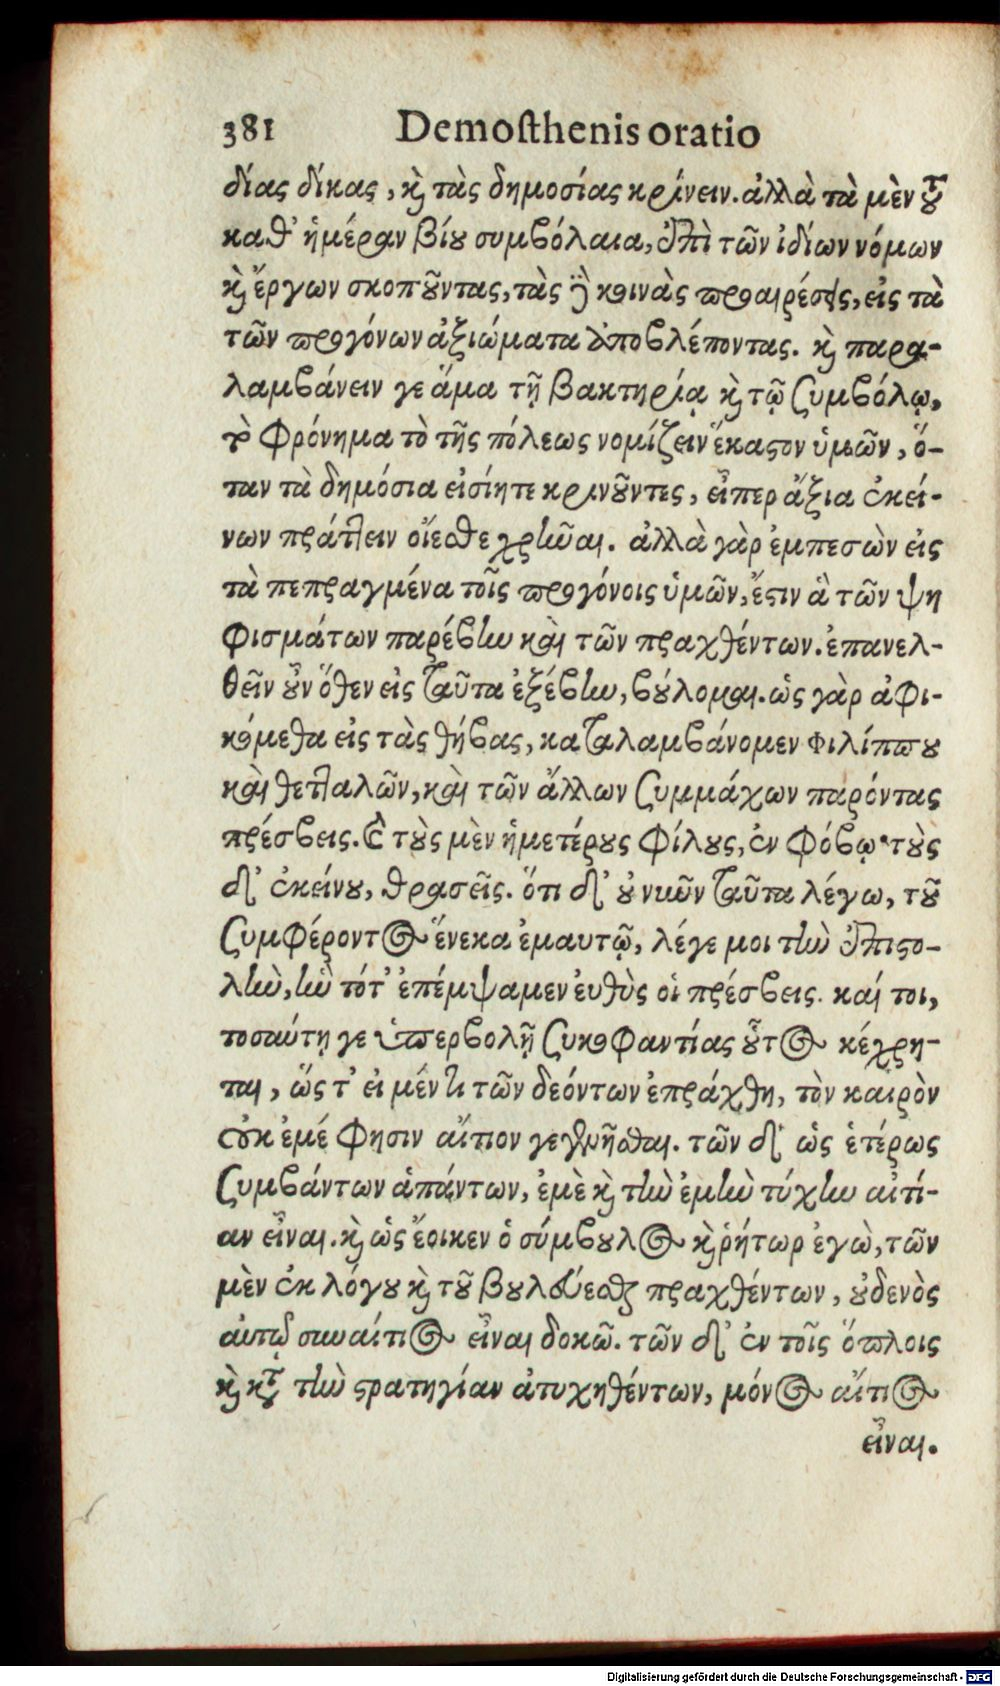 381 Demosthenis oratio
δίας δίκας, καὶ τὰς δημοσίας κρίνειν. ἀλλὰ τὰ μὲν τοῦ
καθ' ἡμέραν βίου συμβόλαια, ἐπὶ τῶν ἰδίων νόμων
καὶ ἔργων σκοποῦντας, τὰς δὲ κοινὰς προαιρέσεις, εἰς τὰ
τῶν προγόνων ἀξιώματα ἀποβλέποντας. καὶ παρα-
λαμβάνειν γε ἅμα τῇ βακτηρίᾳ καὶ τῷ συμβόλῳ,
τὸ φρόνημα τὸ τῆς πόλεως νομίζειν ἕκαστον ὑμῶν, ὅ-
ταν τὰ δημόσια εἰσίητε κρινοῦντες, εἶπερ ἄξια ἐκεί-
νων πράττειν οἴεσθε χρῆναι. ἀλλὰ γὰρ ἐμπεσὼν εἰς
τὰ πεπραγμένα τοῖς προγόνοις ὑμῶν, ἔστιν ἃ τῶν ψη
φισμάτων παρέβην καὶ τῶν πραχθέντων. ἐπανελ-
θεῖν οὖν ὅθεν εἰς ταῦτα ἐξέβην, βούλομαι. ὡς γὰρ ἀφι-
κόμεθα εἰς τὰς θήβας, καταλαμβάνομεν Φιλίππου
καὶ θετταλῶν, καὶ τῶν ἄλλων συμμάχων παρόντας
πρέσβεις. καὶ τοὺς μὲν ἡμετέρους φίλους, ἐν φόβῳ· τοὺς
δ' ἐκείνου, θρασεῖς. ὅτι δ' οὐ νῦν ταῦτα λέγω, τοῦ
συμφέροντος ἕνεκα ἐμαυτῷ, λέγε μοι τὴν ἐπιστο-
λὴν, ἣν τότ' ἐπέμψαμεν εὐθὺς οἱ πρέσβεις. καί τοι,
τοσαύτῃ γε ὑπερβολῇ συκοφαντίας οὗτος κέχρη-
ται, ὥς τ' εἰ μέν τι τῶν δεόντων ἐπράχθη, τὸν καιρὸν
οὐκ ἐμέ φησιν αἴτιον γεγενῆσθαι. τῶν δ' ὡς ἑτέρως
συμβάντων ἁπάντων, ἐμὲ καὶ τὴν ἐμὴν τύχην αἰτί-
αν εἶναι. καὶ ὡς ἔοικεν ὁ σύμβουλος καὶ ῥήτωρ ἐγὼ, τῶν
μὲν ἐκ λόγου καὶ τοῦ βουλεύεσθαι πραχθέντων, οὐδενὸς
αὐτῷ συναίτιος εἶναι δοκῶ. τῶν δ' ἐν τοῖς ὅπλοις
καὶ κατὰ τὴν στρατηγίαν ἀτυχηθέντων, μόνος αἴτιος
εἶναι.
Digitalisierung gefördert durch die Deutsche Forschungsgemeinschaft - DFG